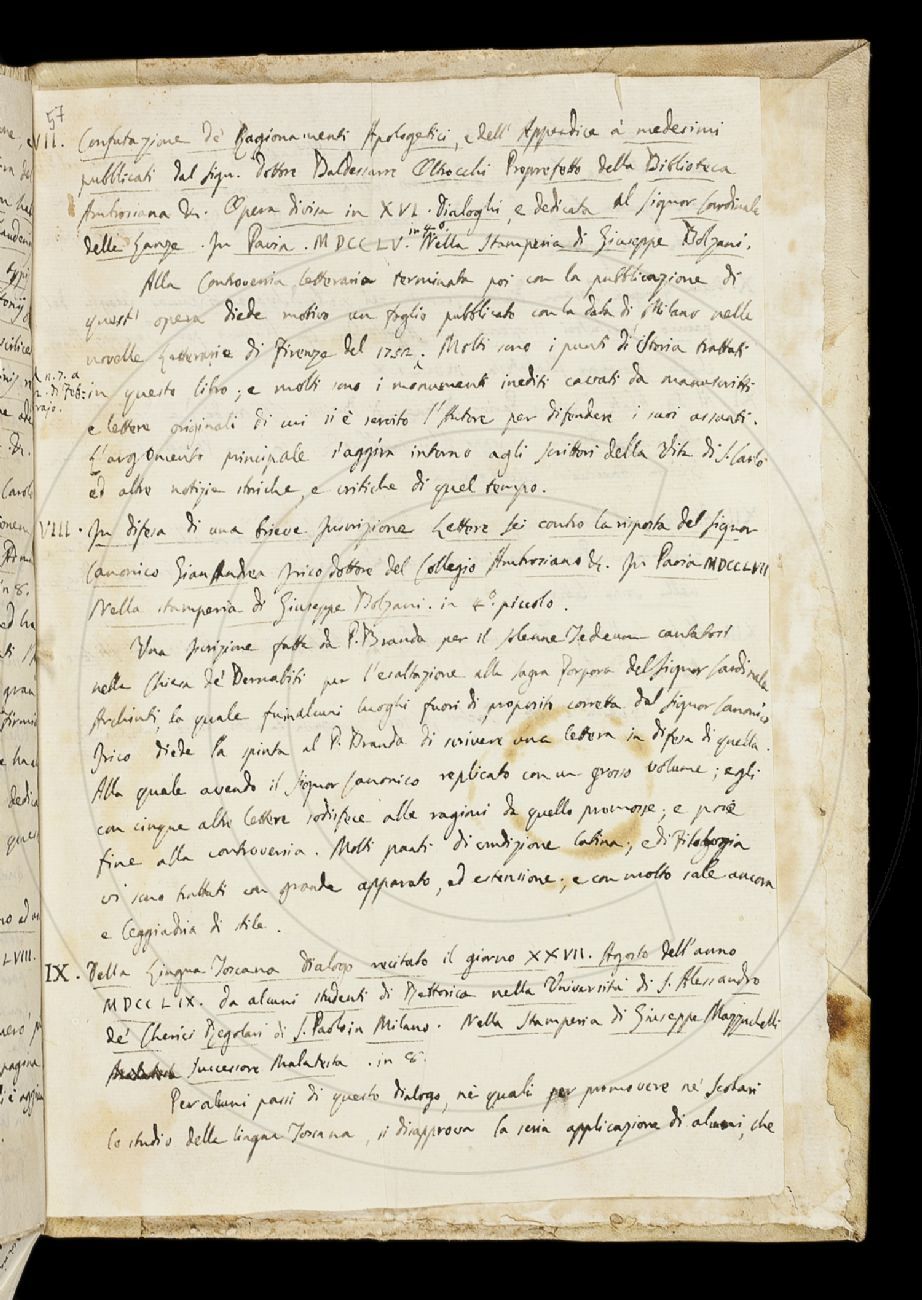 57
VII. Confutazione de' Ragionamenti Apologetici, e dell' Appendice a' medesimi
pubblicati dal Sign. Dottore Baldessarre Oltrocchi Proprefetto della Biblioteca
Ambrosiana &c. Opera divisa in XVI. Dialoghi, e dedicata al Signor Cardinale
delle Lanze. In Pavia. MDCCLV. in 4o. Nella Stamperia di Giuseppe Bolzani.
Alla Controversia letteraria terminata poi con la pubblicazione di
quest' opera diede motivo un foglio pubblicato con la data di Milano nelle
novelle Letterarie di Firenze del 1752. Molti sono i punti di Storia trattati
n. 7. a
di Feb:
rajo.
in questo libro; e molti sono i monumenti inediti cavati da manuscritti
e lettere originali di cui si è servito l'Autore per difendere i suoi assunti.
L'argomento principale s'aggira intorno agli scrittori della Vita di S. Carlo
ed altre notizie storiche, e critiche di quel tempo.
VIII. In difesa di una breve Inscrizione Lettere sei contro la risposta del Signor
Canonico GianAndrea Irico dottore del Collegio Ambrosiano &c. In Pavia MDCCLVII
Nella stamperia di Giuseppe Bolzani. in 4o. piccolo.
Una Iscrizione fatta da P. Branda per il solenne Tedeum cantatosi
nella Chiesa de' Bernabiti per l'esaltazione alla sagra Porpora del Signor Cardinale
Archinti, la quale fu in alcuni luoghi fuori di proposito corretta dal Signor Canonico
Irico diede la spinta al P. Branda di scrivere una lettera in difesa di quella.
Alla quale avendo il Signor Canonico replicato con un grosso volume; egli
con cinque altre lettere sodisfece alle ragioni da quello promosse; e pose
fine alla controversia. Molti punti di erudizione latina, e di Filologia
vi sono trattati con grande apparato, ed estensione; e con molto sale ancora
e leggiadria di stile.
IX. Della Lingua Toscana Dialogo recitato il giorno XXVII. Agosto dell'anno
MDCCLIX. da alcuni studenti di Rettorica nella Università di S. Alessandro
de' Cherici Regolari di S. Paolo in Milano. Nella Stamperia di Giuseppe Mazzuchelli
Successore Malatesta. in 8.
Per alcuni passi di questo dialogo, nei quali per promovere ne' Scolari
lo studio della lingua Toscana, si disapprova la seria applicazione di alcuni, che